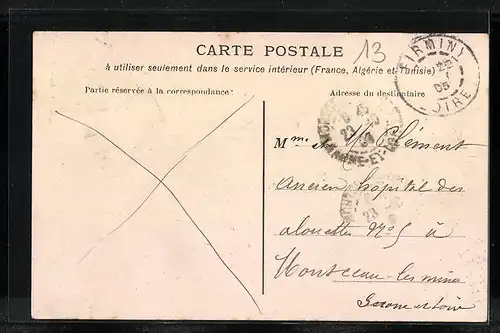 CARTE POSTALE
13
à utiliser seulement dans le service intérieur (France, Algérie et Tunisie)
Partie réservée à la correspondance
Adresse du destinataire
FIRMINY
22
05
LOIRE
Mme Clément
Ancien hôpital des
alouettes No 5 à
Montceau-les-mines
Saone et Loire